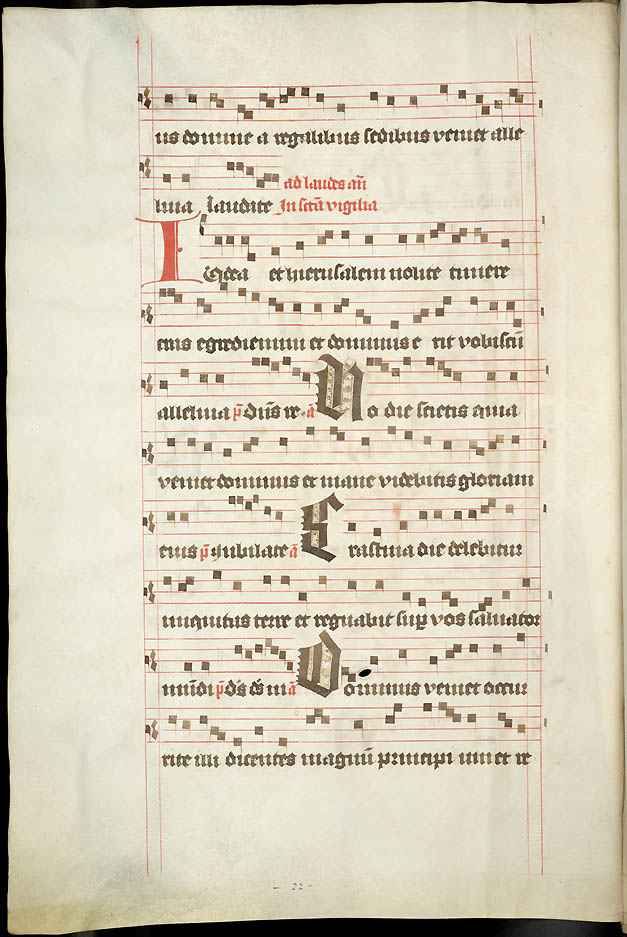 us domine a regalibus sedibus veniet alle
luia laudate ad laudes añ
In sctã vigilia
I udea et hierusalem nolite timere
cras egrediemini et dominus e rit vobiscũ
alleluia p̃ dñs re. ã H o die scietis quia
veniet dominus et mane videbitis gloriam
eius p̃ Iubilate ã C rastina die delebitur
iniquitas terre et regnabit sup̱ vos saluator
mũdi p̃ ds ds m ã D ominus veniet occur
rite illi dicentes magnũ principi um et re
- 22 -